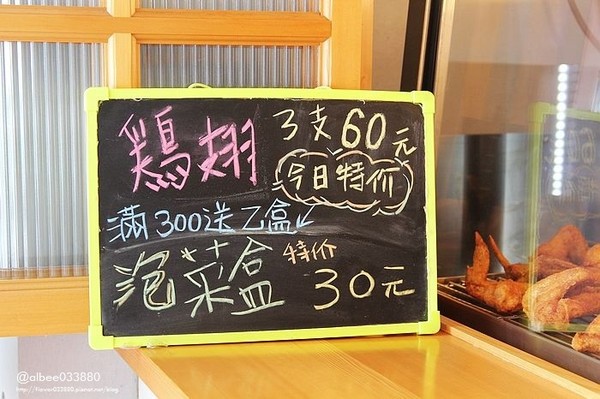 鶏翅 3支60元
今日特价
滿300送乙盒↙
泡菜盒 特价 30元
@albee033880
http://flavor033880.pixnet.net/blog